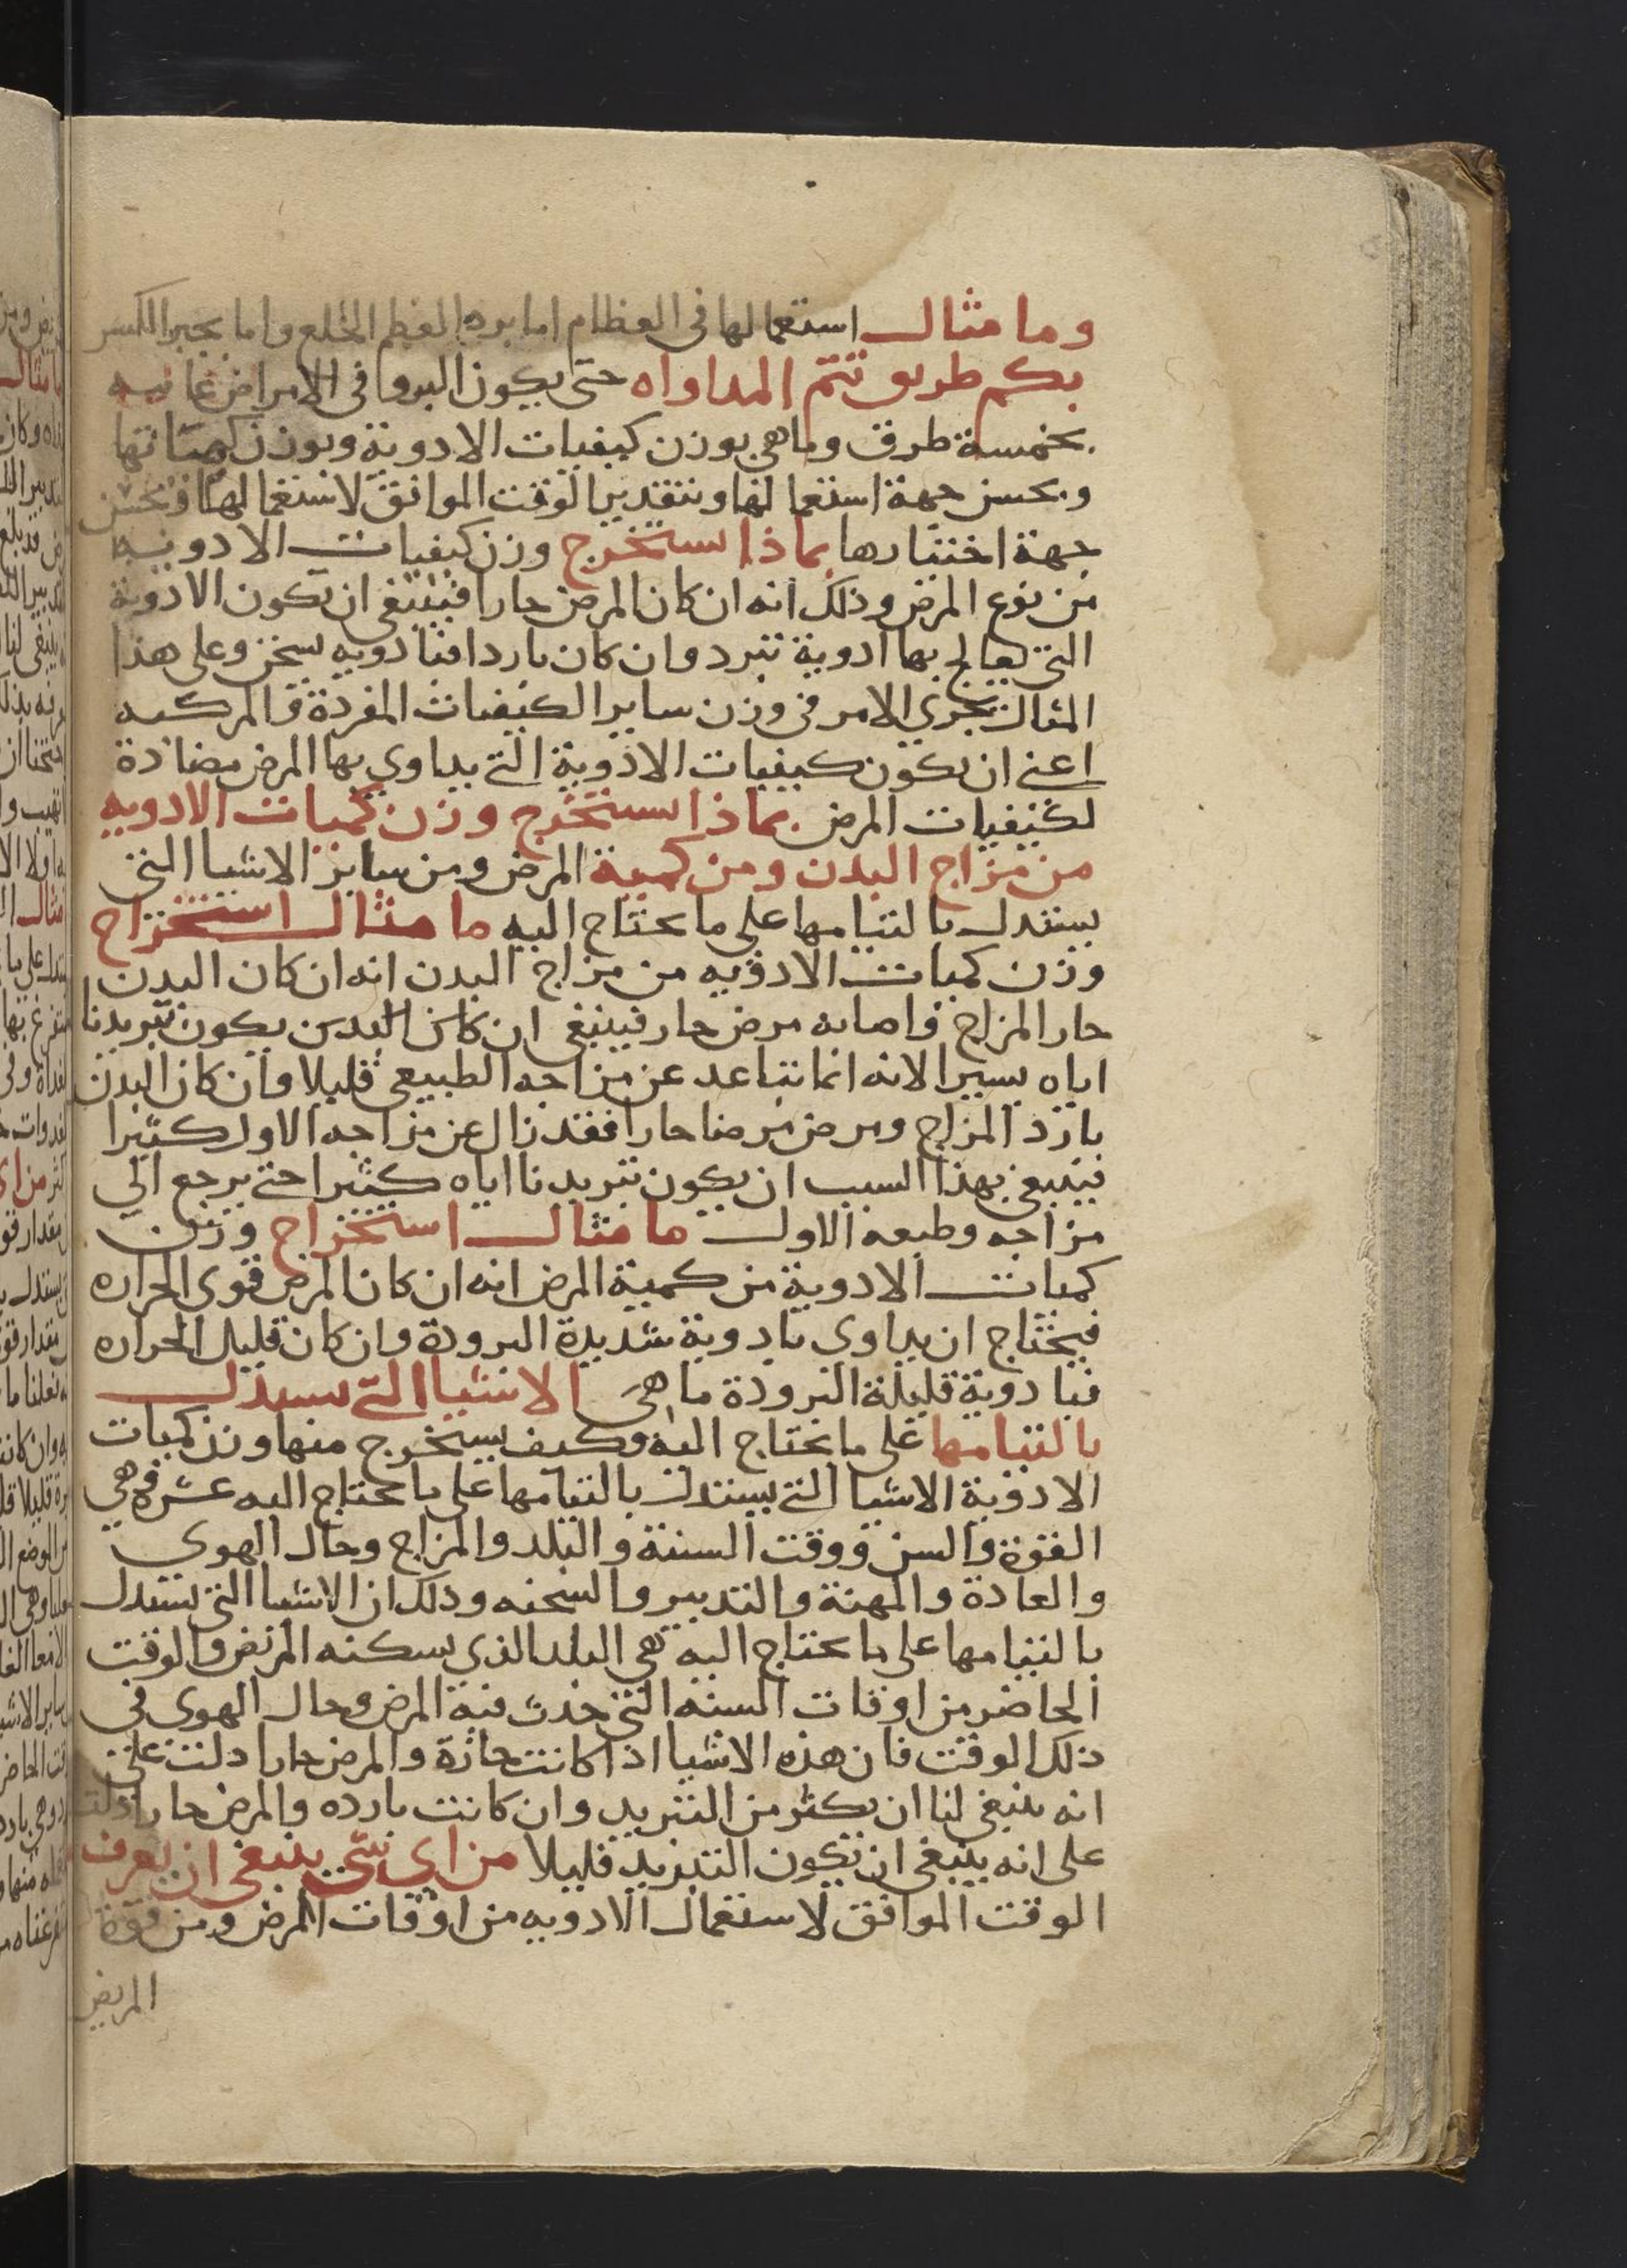 وما مثال استعمالها فى العظام اما برد العظم الخلع واما بجبر الكسر
بكم طريق تتم المداواه حتى يكون البروا فى الامراض
بخمسة طرق وما هى بوزن كيفيات الادوية وبوزن كمياتها
وبحسن جهة استعمالها وبتقدير الوقت الموافق لاستعمالها وبحسن
جهة اختيارها بماذا يستخرج وزن كيفيات الادويه
من نوع المرض وذلك انه ان كان المرض حارا فينبغى ان تكون الادوية
التى يعالج بها ادوية تبرد وان كان باردا فبادويه تسخن وعلى هذا
المثال يجري الامر فى وزن ساير الكيفيات المفردة والمركبه
اعنى ان يكون كيفيات الادوية التى يداوي بها المرض مضادة
لكيفيات المرض بماذا يستخرج وزن كميات الادويه
من مزاج البدن ومن كمية المرض ومن ساير الاشيا التى
يستدل بالتيامها على ما يحتاج اليه ما مثال استخراج
وزن كميات الادويه من مزاج البدن انه ان كان البدن
حار المزاج واصابه مرض حار فينبغى ان كان البدن يكون تبريدنا
اياه يسيرا لانه انما تباعد عن مزاجه الطبيعى قليلا وان كان البدن
بارد المزاج ومرض مرضا حارا فقد زال عن مزاجه الاول كثيرا
فينبغى بهذا السبب ان يكون تبريدنا اياه كثيرا حتى يرجع الي
مزاجه وطبعه الاول ما مثال استخراج وزن
كميات الادوية من كمية المرض انه ان كان المرض قوى الحراره
فيحتاج ان يداوى بادوية شديدة البرودة وان كان قليل الحراره
فبادوية قليلة البرودة ما هى الاشيا التى يستدل
بالتيامها على ما يحتاج اليه وكيف يستخرج منها وزن كميات
الادوية الاشيا التى يستدل بالتيامها على ما يحتاج اليه عشره وهي
القوة والسن ووقت السنة والبلد والمزاج وحال الهوي
والعادة والمهنة والتدبير والسحنه وذلك ان الاشيا التى يستدل
بالتيامها على ما يحتاج اليه هى البلد الذي يسكنه المريض والوقت
الحاضر من اوقات السنه التى حدث فيه المرض وحال الهوى فى
ذلك الوقت فان هذه الاشيا اذا كانت حارة والمرض حارا دلت على
انه ينبغى لنا ان يكثر من التبريد وان كانت بارده والمرض حارا دلت
على انه ينبغى ان يكون التبريد قليلا من اى شى ينبغى ان يعرف
الوقت الموافق لاستعمال الادويه من اوقات المرض ومن قوة
المريض